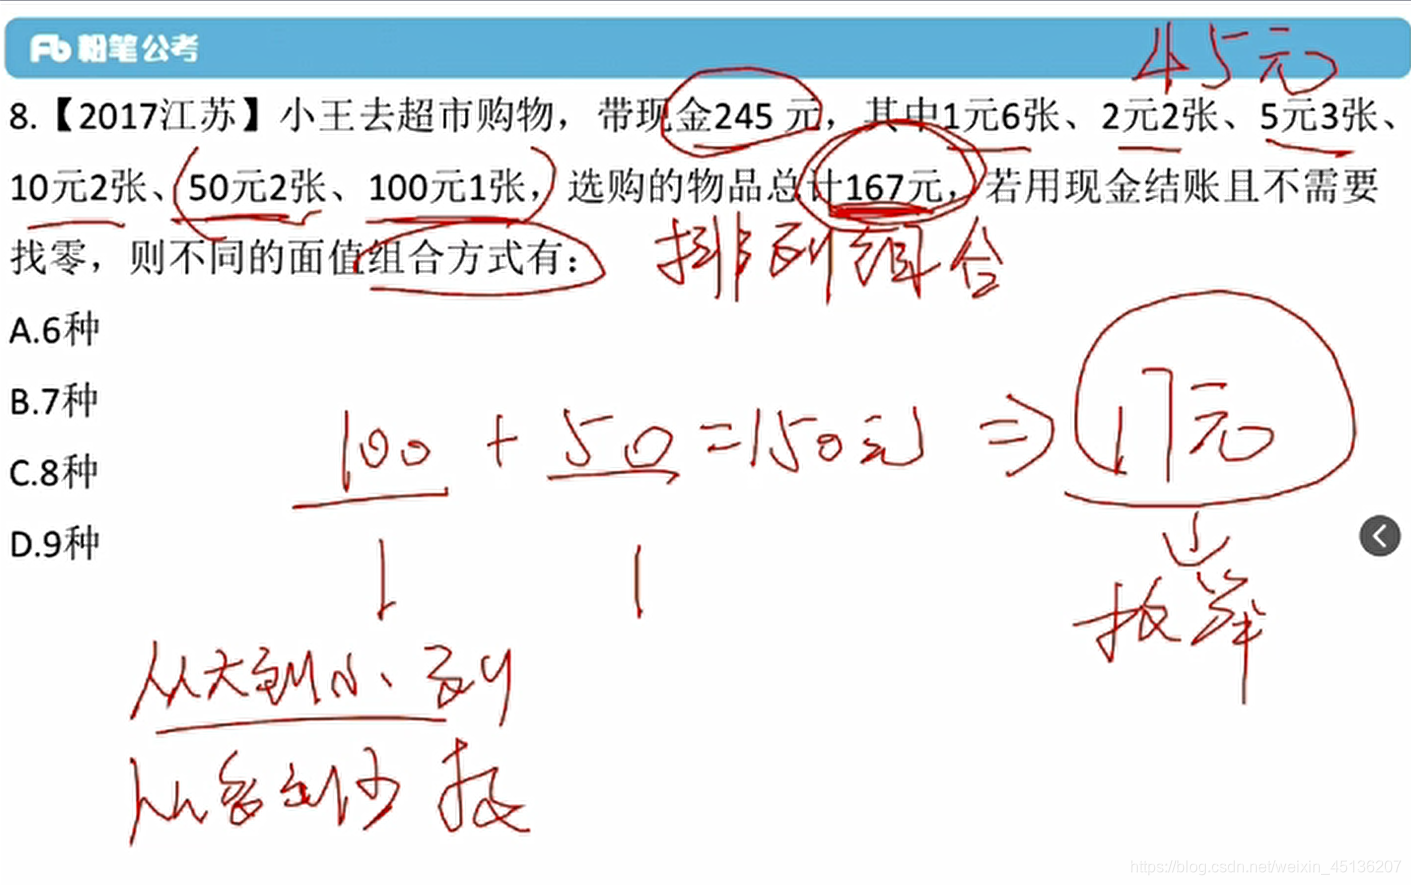 粉笔公考
45元
8.【2017江苏】小王去超市购物，带现金245 元，其中1元6张、2元2张、5元3张、
10元2张、50元2张、100元1张，选购的物品总计167元，若用现金结账且不需要
找零，则不同的面值组合方式有：
排列组合
A.6种
B.7种
C.8种
D.9种
100 + 50 = 150元 ⇒ 17元
1 1
枚举
从大到小、列
从多到少 找
https://blog.csdn.net/weixin_45136207